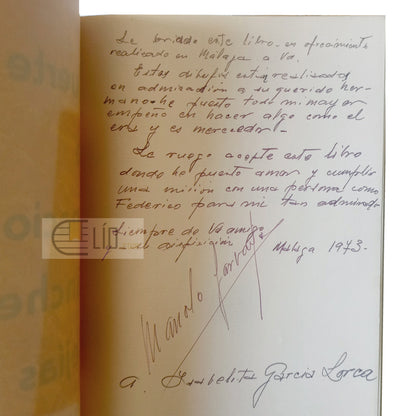 Le brindo este libro, en ofrecimiento
realizado en Málaga a Vd.
Estos dibujos están realizados
en admiración a su querido her-
mano he puesto todo mi mayor
empeño en hacer algo como el
era y es merecedor.
Le ruego acepte este libro
donde he puesto amor y cumplir
una mision con una persona como
Federico para mi tan admirado
Siempre de Vd amigo
disposición
Malaga 1973-
Manolo
A. Isabelita García Lorca
ELíp